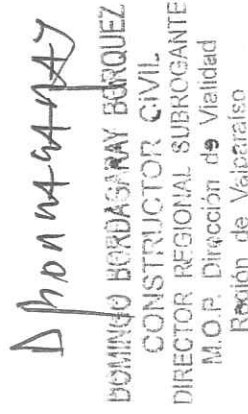 DOMINGO BORDAGARAY BORQUEZ
CONSTRUCTOR CIVIL
DIRECTOR REGIONAL SUBROGANTE
M.O.P. Dirección de Vialidad
Región de Valparaíso